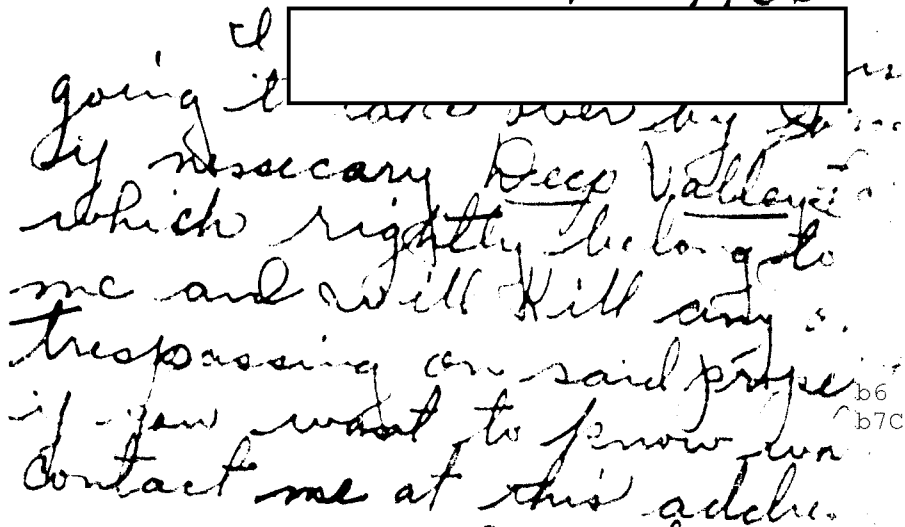 I
going to take over by
if nessecary Deep Valley
which rightly belong to
me and will Kill any
trespassing on said prope
b6
if you want to know
b7C
contact me at this addre